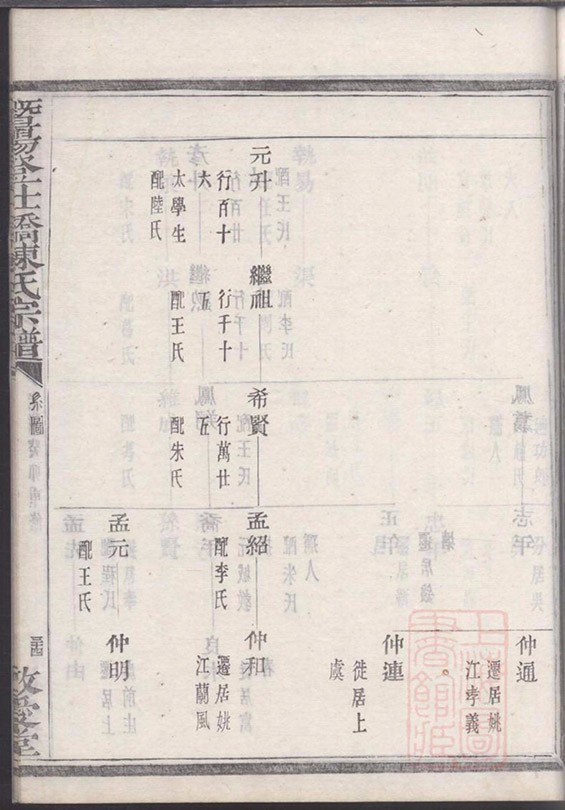 仲通
遷居姚
江孝義
仲連
徙居上
虞
元升
行百十
六
太學生
配陸氏
繼祖
行千十
五
配王氏
希賢
行萬廿
五
配朱氏
孟紹
配李氏
仲和
遷居姚
江蘭風
孟元
配王氏
仲明
暨陽登仕橋陳氏宗譜
系圖
敬愛堂